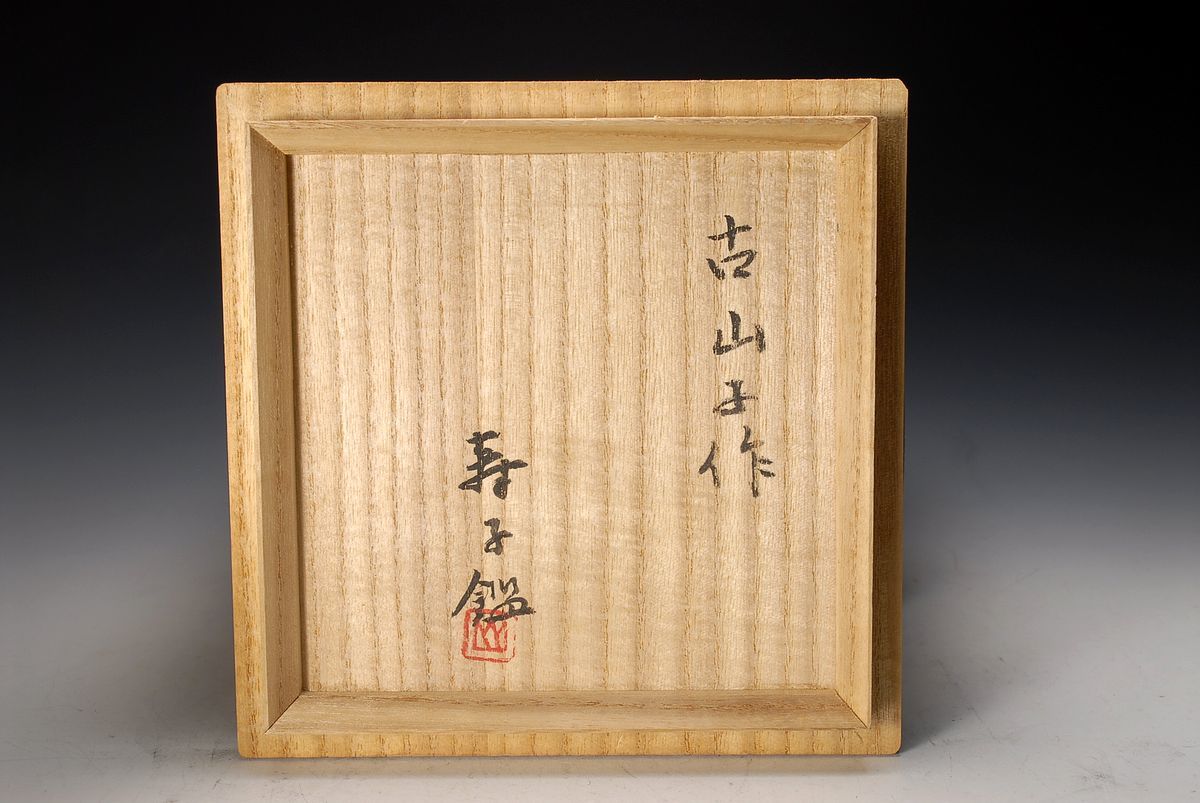 古山子作
寿子鑑